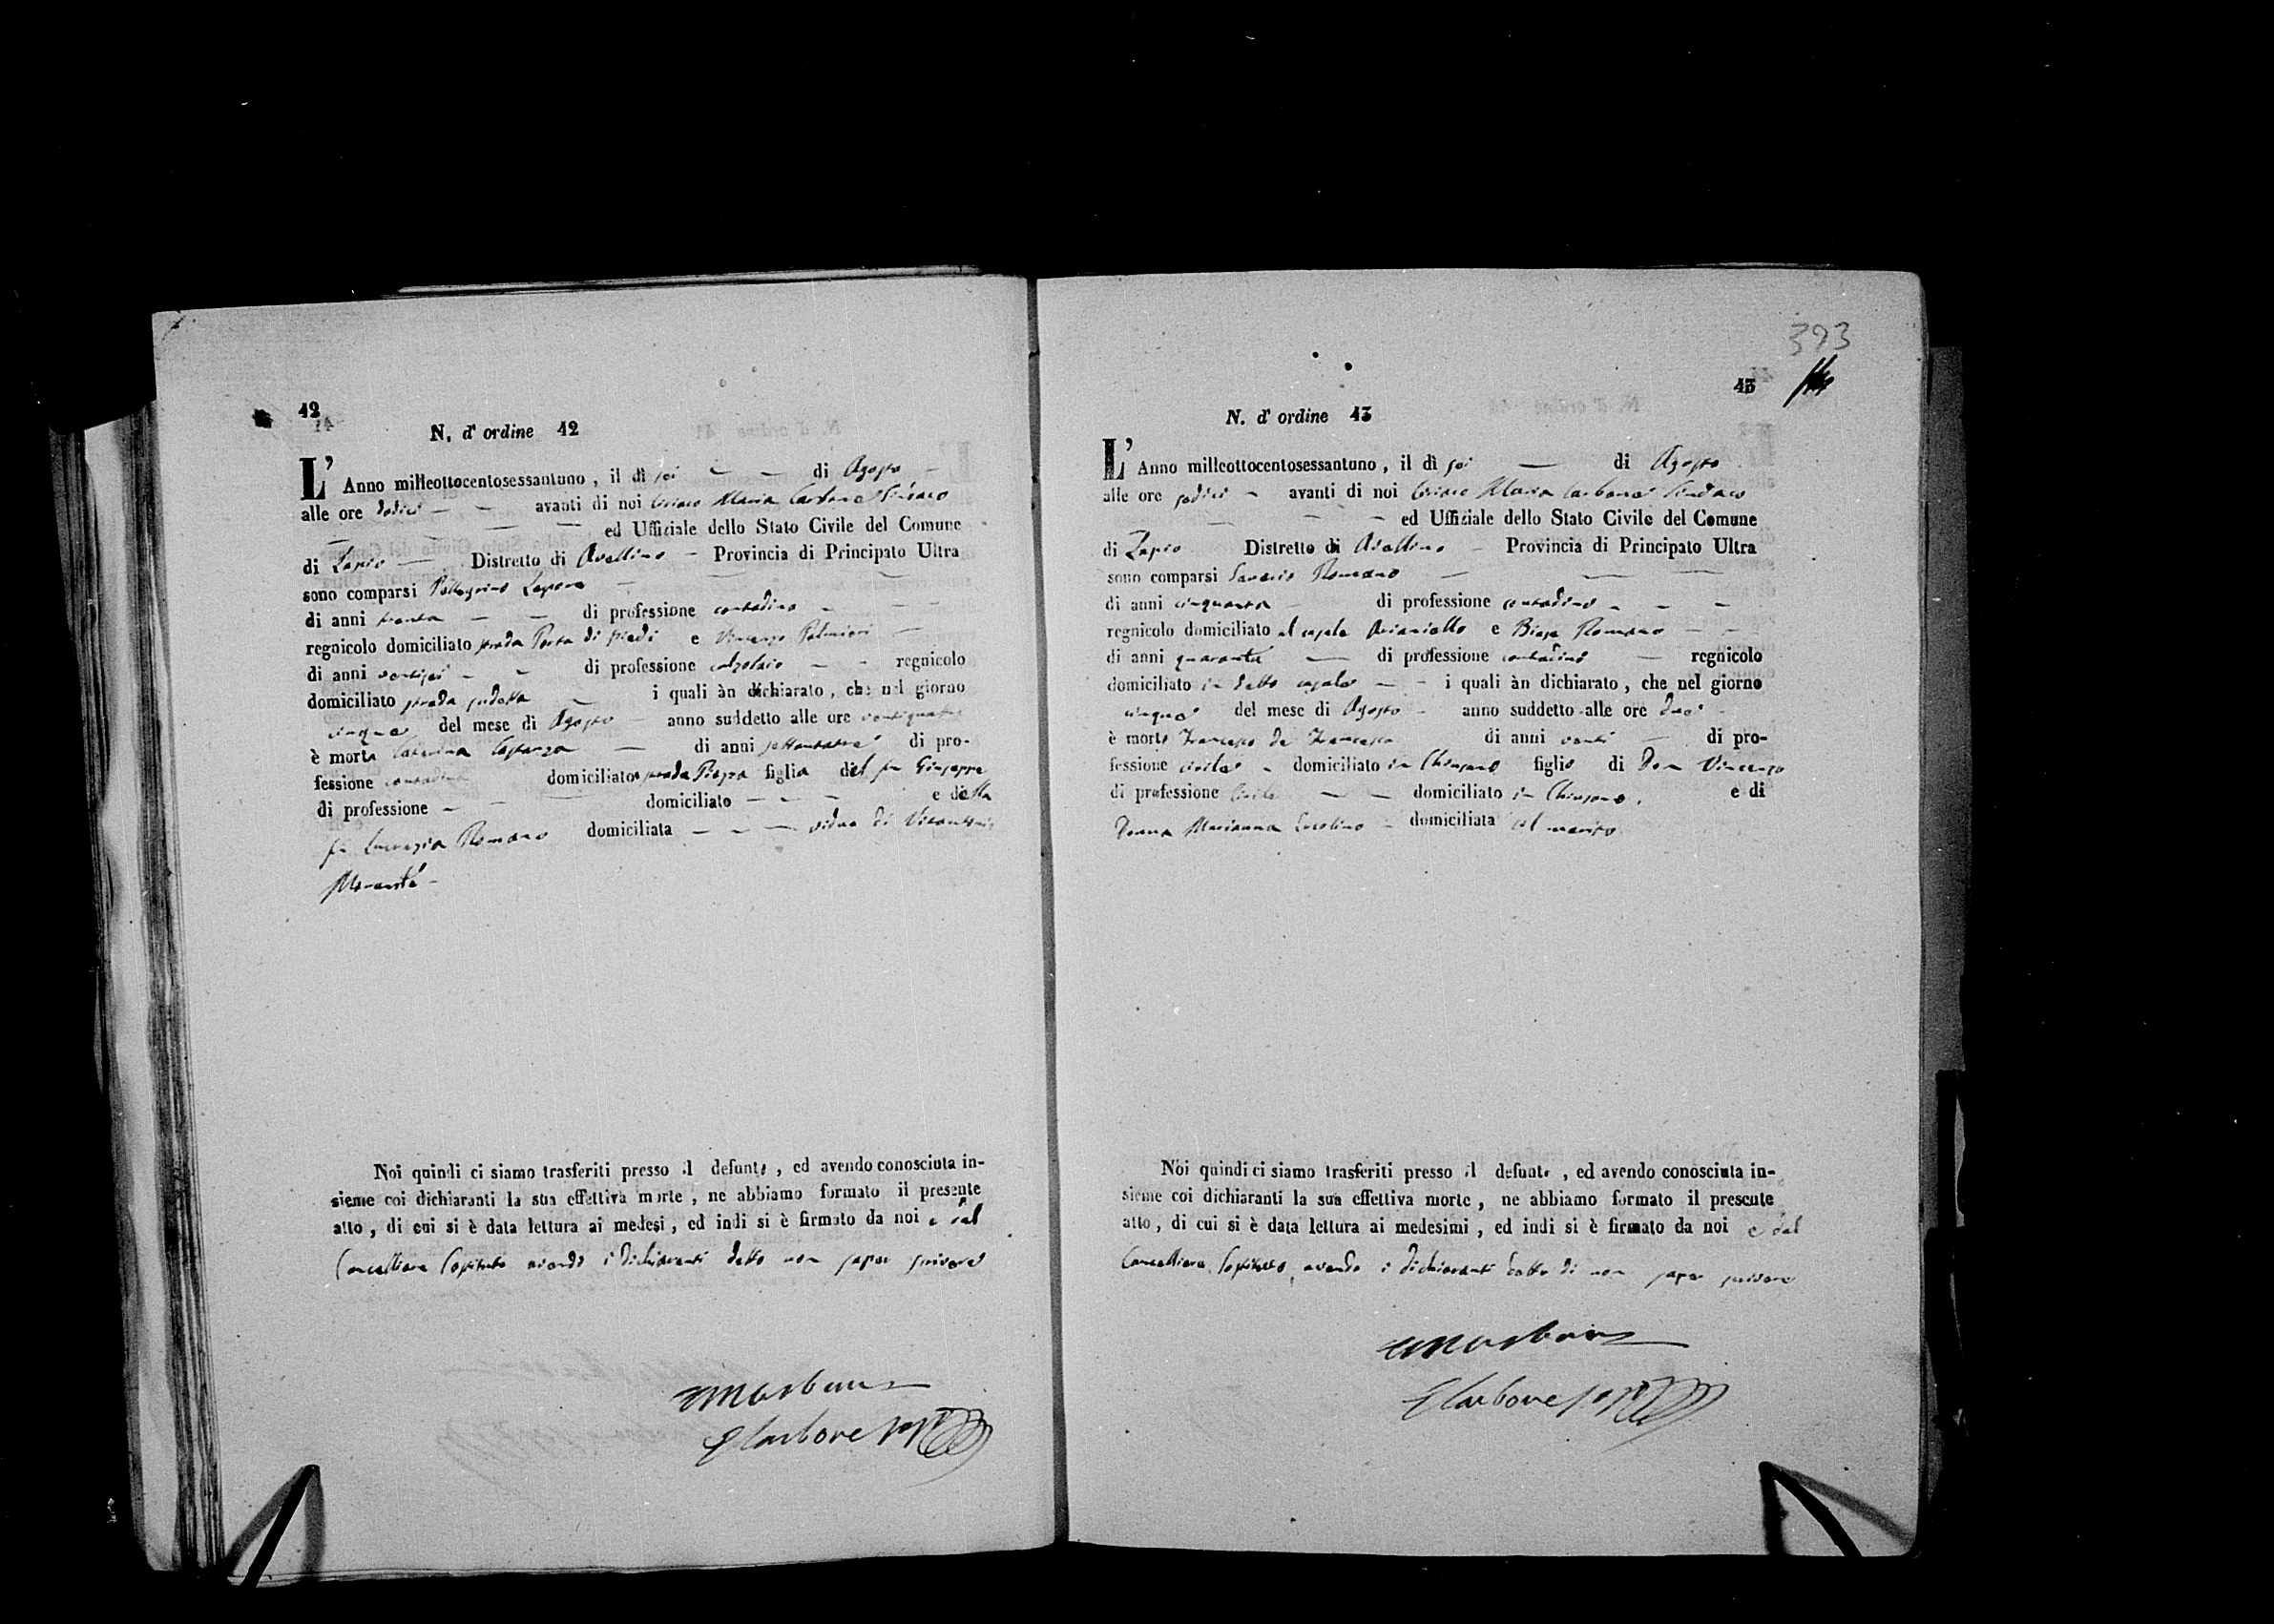 42
N. d' ordine 42
L' Anno milleottocentosessantuno, il dì sei — — di Agosto —
alle ore dodici — — avanti di noi Ciriaco Maria Carbone Sindaco
— — — ed Uffiziale dello Stato Civile del Comune
di Lapio — Distretto di Avellino — Provincia di Principato Ultra
sono comparsi Pellegrino Lapone — — —
di anni trenta — — di professione contadino — — —
regnicolo domiciliato strada Porta di piedi e Vincenzo Palmieri —
di anni ventisei — — di professione calzolaio — — regnicolo
domiciliato strada sudetta — i quali àn dichiarato, che nel giorno
cinque del mese di Agosto — anno suddetto alle ore ventiquattro
è morta Caterina Costanza — di anni settantatre di pro-
fessione contadina domiciliata strada Piazza figlia del fu Giuseppe
di professione — — — domiciliato — — — e della
fu Lucrezia Romano domiciliata — — — vidua di Vitantonio
393
43
N. d' ordine 43
L' Anno milleottocentosessantuno, il dì sei — di Agosto
alle ore sedici — avanti di noi Ciriaco Maria Carbone Sindaco
— — — ed Uffiziale dello Stato Civile del Comune
di Lapio Distretto di Avellino — Provincia di Principato Ultra
sono comparsi Saverio Romano — — —
di anni cinquanta — di professione contadino — — —
regnicolo domiciliato al casale Arianiello e Biase Romano — —
di anni quaranta — di professione contadino — regnicolo
domiciliato in detto casale — — i quali àn dichiarato, che nel giorno
cinque del mese di Agosto — anno suddetto alle ore dieci —
è morto Francesco de Francesco di anni venti — di pro-
fessione civile — domiciliato in Chiusano figlio di Don Vincenzo
di professione civile — — domiciliato in Chiusano, e di
Donna Marianna — domiciliata col marito
Noi quindi ci siamo trasferiti presso il defunto, ed avendo conosciuta in-
sieme coi dichiaranti la sua effettiva morte, ne abbiamo formato il presente
atto, di cui si è data lettura ai medesi, ed indi si è firmato da noi e dal
Cancelliere Sostituto avendo i dichiaranti detto non saper scrivere
Noi quindi ci siamo trasferiti presso il defunto, ed avendo conosciuta in-
sieme coi dichiaranti la sua effettiva morte, ne abbiamo formato il presente
atto, di cui si è data lettura ai medesimi, ed indi si è firmato da noi e dal
Cancelliere Sostituto, avendo i dichiaranti detto di non saper scrivere
CMCarbone
CMCarbone
Carbone
Carbone